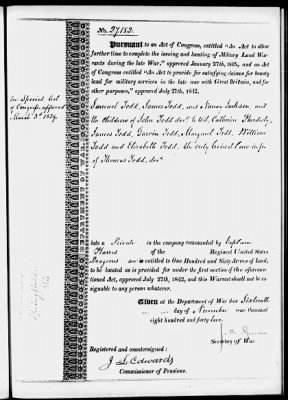 No. 27,182.
Pursuant to an Act of Congress, entitled "An Act to allow
further time to complete the issuing and locating of Military Land War-
rants during the late War," approved January 27th, 1835, and an Act
of Congress entitled "An Act to provide for satisfying claims for bounty
land for military services in the late war with Great Britain, and for
other purposes," approved July 27th, 1842.
Special Act
of Congress approved
March 3d
Samuel Todd, James Todd, and Nancy Jackson, and
the Children of John Todd decd to wit, Catherine
James Todd, Gavin Todd, Margaret Todd, William
Todd and Elizabeth Todd. the only heirs at law
of Thomas Todd, decd
late a Private in the company commanded by Captain
Regiment United States
Dragoons entitled to One Hundred and Sixty Acres of Land,
to be located as is provided for under the first section of this aforemen-
tioned Act, approved July 27th, 1842, and this Warrant shall not be as-
signable to any person whatever.
Given at the Department of War this Sixteenth
day of November one thousand
eight hundred and forty-
Secretary of War.
Registered and countersigned:
J L Edwards
Commissioner of Pensions.